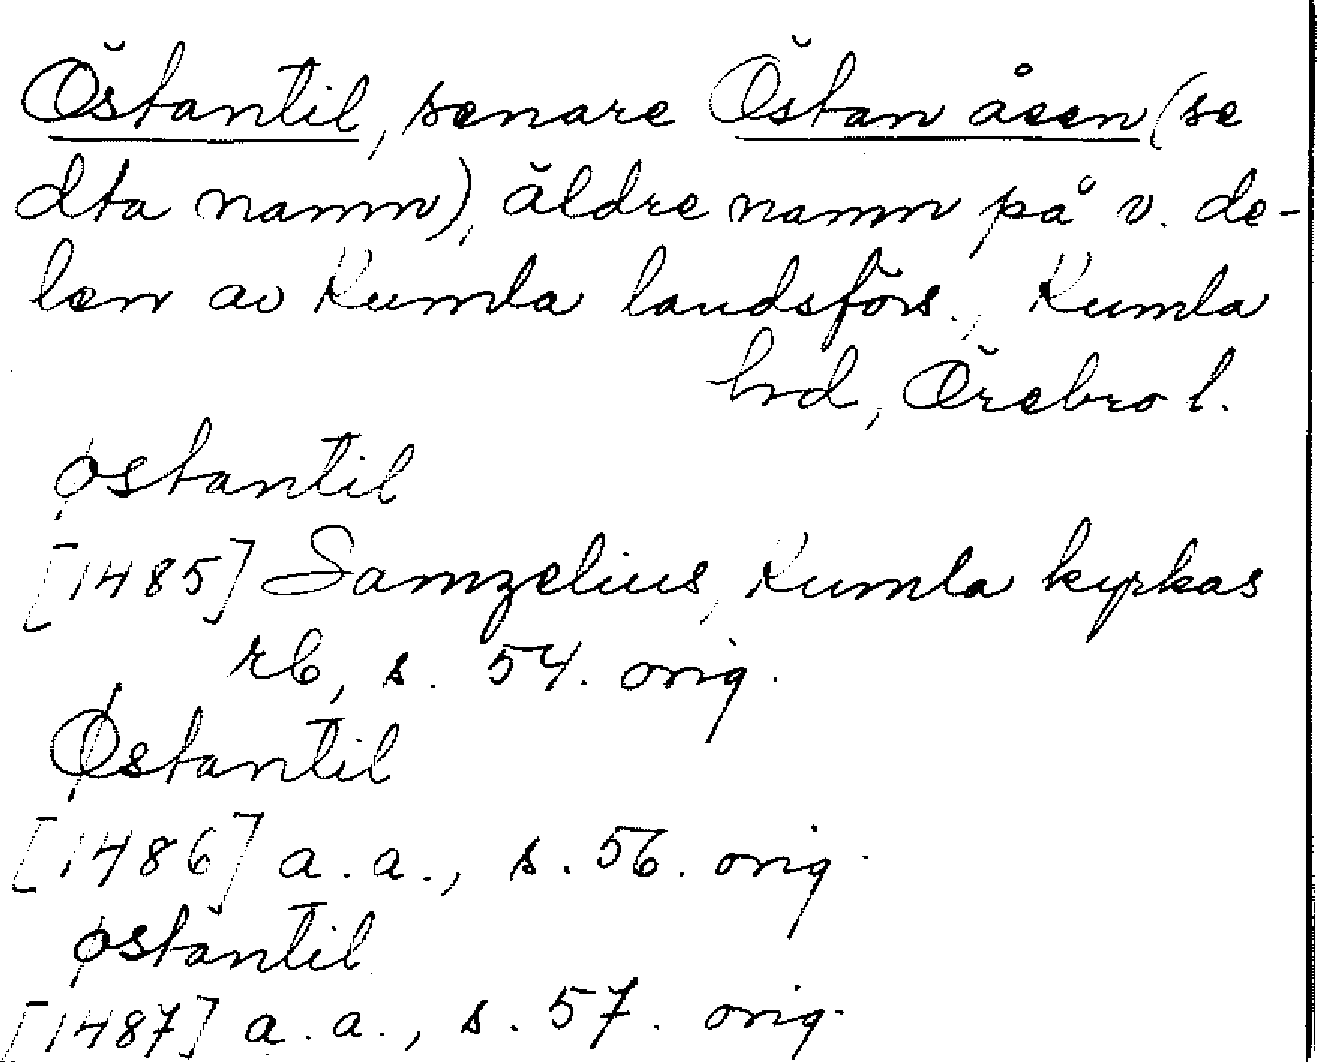 Östantil, senare Östan åsen (se
dta namn), äldre namn på v. de-
len av Kumla landsförs., Kumla
hrd, Örebro l.
østantil
[1485] Samzelius, Kumla kyrkas
rb, s. 54. orig.
Østantil
[1486] a.a., s. 56. orig.
østäntil
[1487] a.a., s. 57. orig.